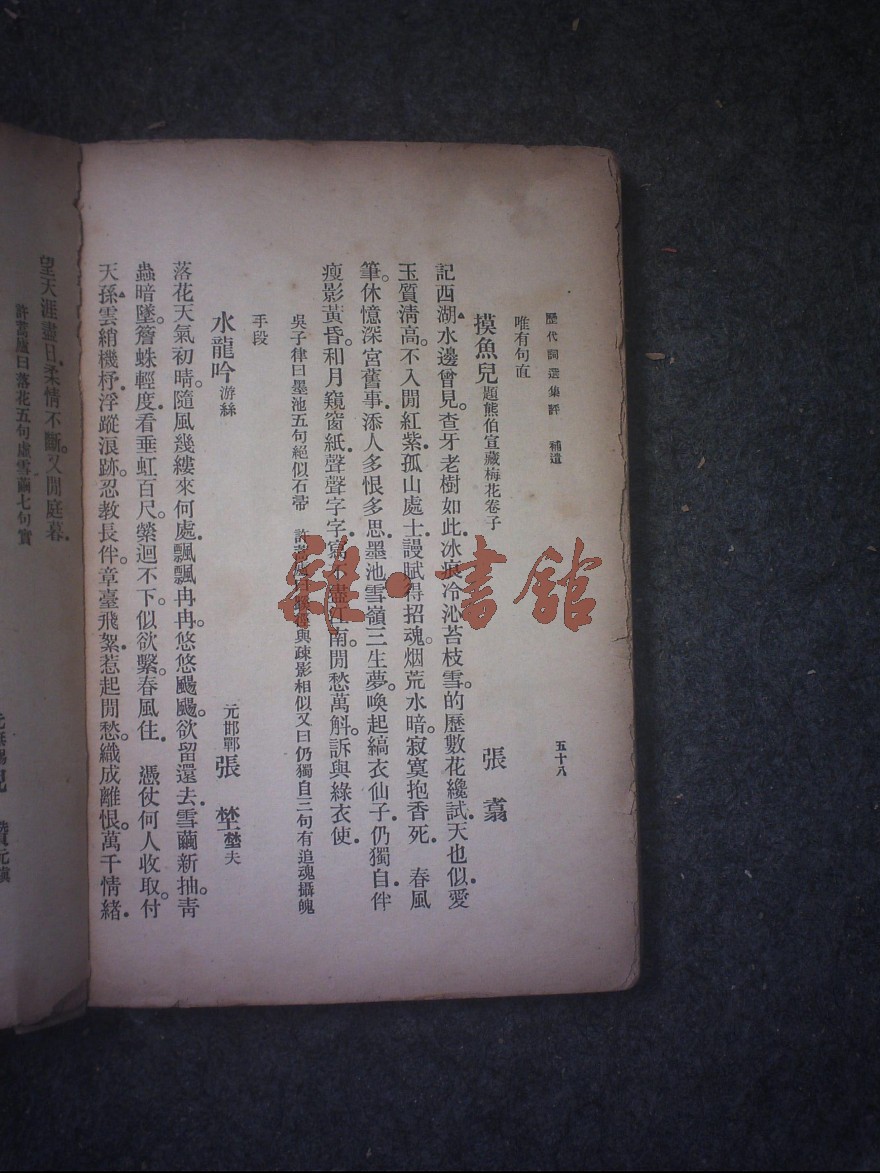 歷代詞選集評　補遺　五十八
唯有句直
摸魚兒題熊伯宣藏梅花卷子　張翥
記西湖水邊曾見。查牙老樹如此。冰痕冷沁苔枝雪。的歷數花纔試。天也似愛
玉質清高。不入閒紅紫。孤山處士。謾賦得招魂。烟荒水暗。寂寞抱香死。　春風
筆。休憶深宮舊事。添人多恨多思。墨池雪嶺三生夢。喚起縞衣仙子。仍獨自伴
瘦影黃昏。和月窺窗紙。聲聲字字。寫不盡江南。閒愁萬斛。訴與綠衣使。
吳子律曰墨池五句絕似石帚　許蒿廬曰與疎影相似又曰仍獨自三句有追魂攝魄
手段
水龍吟游絲　元邯鄲張埜埜夫
落花天氣初晴。隨風幾縷來何處。飄飄冉冉。悠悠颺颺。欲留還去。雪繭新抽。靑
蟲暗墜。簷蛛輕度。看垂虹百尺。縈迴不下。似欲繫。春風住。　憑仗何人收取。付
天孫雲綃機杼。浮蹤浪跡。忍教長伴。章臺飛絮。惹起閒愁。織成離恨。萬千情緒。
望天涯盡日。柔情不斷。又閒庭暮。
許蒿廬曰落花五句虛雪繭七句實
雜·書館